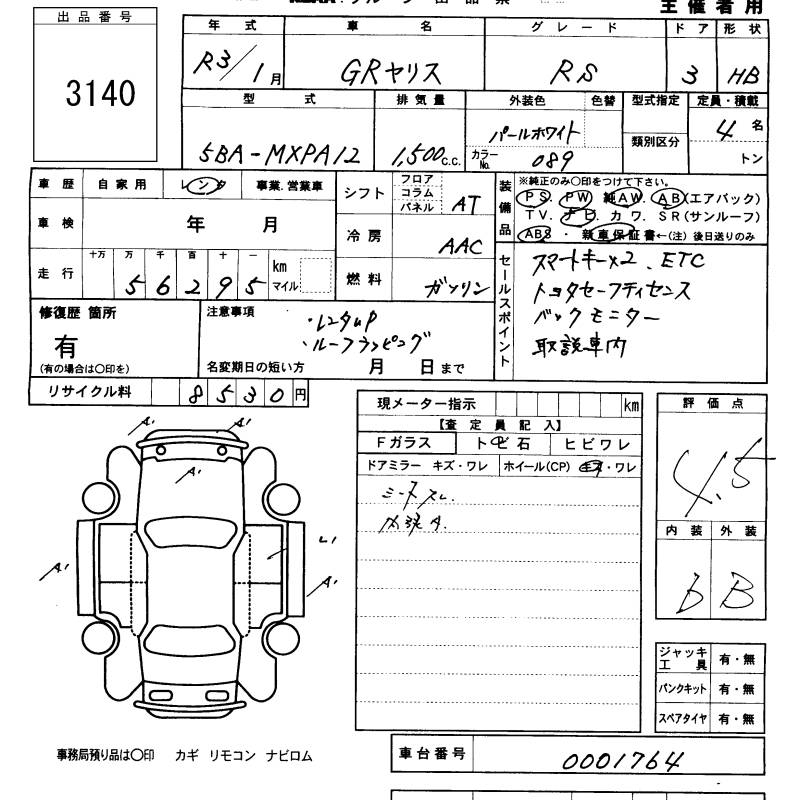 主催者用
出品番号
3140
年式 車名 グレード ドア 形状
R3/1月 GRヤリス RS 3 HB
型式 排気量 外装色 色替 型式指定 定員・積載
5BA-MXPA12 1,500c.c. パールホワイト 4名
カラーNo. 089 類別区分 トン
車歴 自家用 レンタ 事業.営業車
車検 年 月
走行 十万 万 千 百 十 一
56295 km マイル
シフト フロア コラム パネル AT
冷房 AAC
燃料 ガソリン
装備品
※純正のみ〇印をつけて下さい。
PS. PW 純AW. AB(エアバック)
TV. ナビ カワ. SR(サンルーフ)
ABS ・ 新車保証書←(注) 後日送りのみ
セールスポイント
スマートキーx2、ETC
トヨタセーフティセンス
バックモニター
取説車内
修復歴 箇所
有
(有の場合は〇印を)
注意事項
・レンタUP
・ルーフラッピング
名変期日の短い方 月 日まで
リサイクル料 8530円
現メーター指示 km
【査定員記入】
Fガラス トビ石 ヒビワレ
ドアミラー キズ・ワレ ホイール(CP) キズ・ワレ
シートスレ.
内張キ.
評価点
4.5
内装 外装
b B
A' A'
A'
L'
A' A'
ジャッキ工具 有・無
パンクキット 有・無
スペアタイヤ 有・無
事務局預り品は〇印 カギ リモコン ナビロム
車台番号 0001764